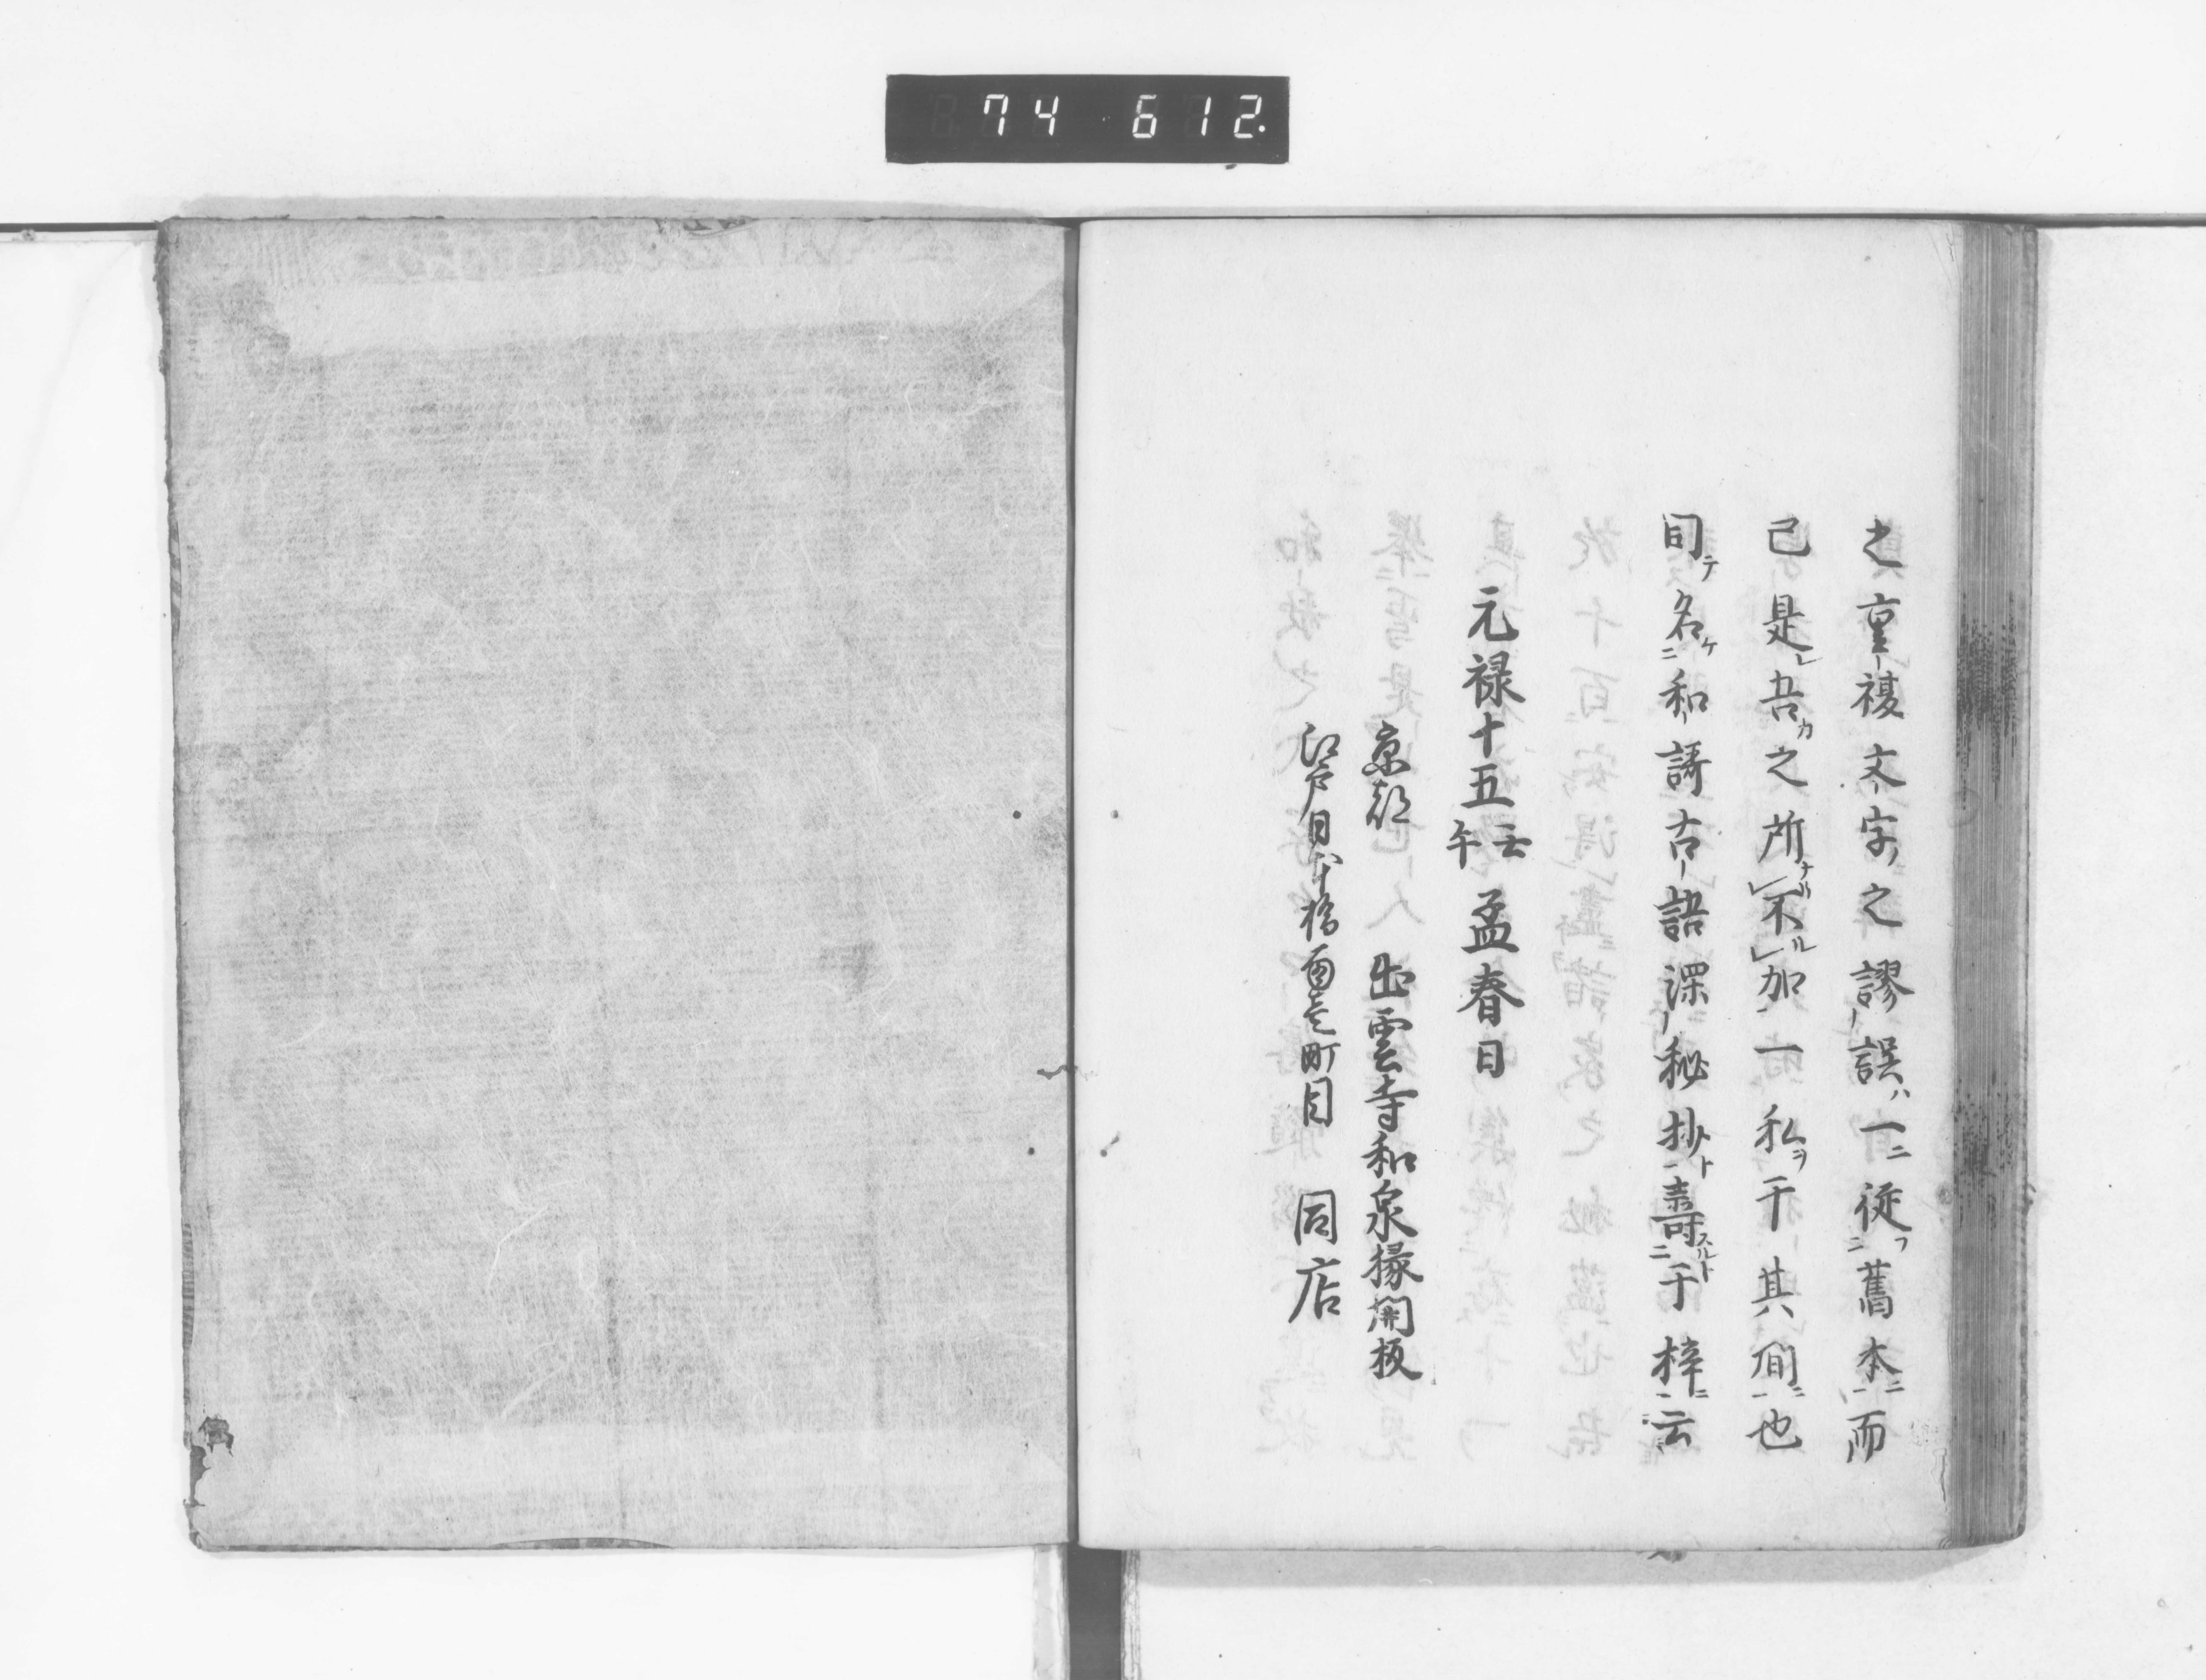 74 612.
之重複文字之謬誤ハ一ニ従フ舊本ニ而
己是レ吾カ之所ナリ不ル加一私ヲ于其間ニ也
同テ名ケ和謌古語深秘抄ト壽スルト于梓ニ云
元禄十五壬午孟春日
京都 出雲寺和泉掾開板
江戸日本橋南壱町目 同店